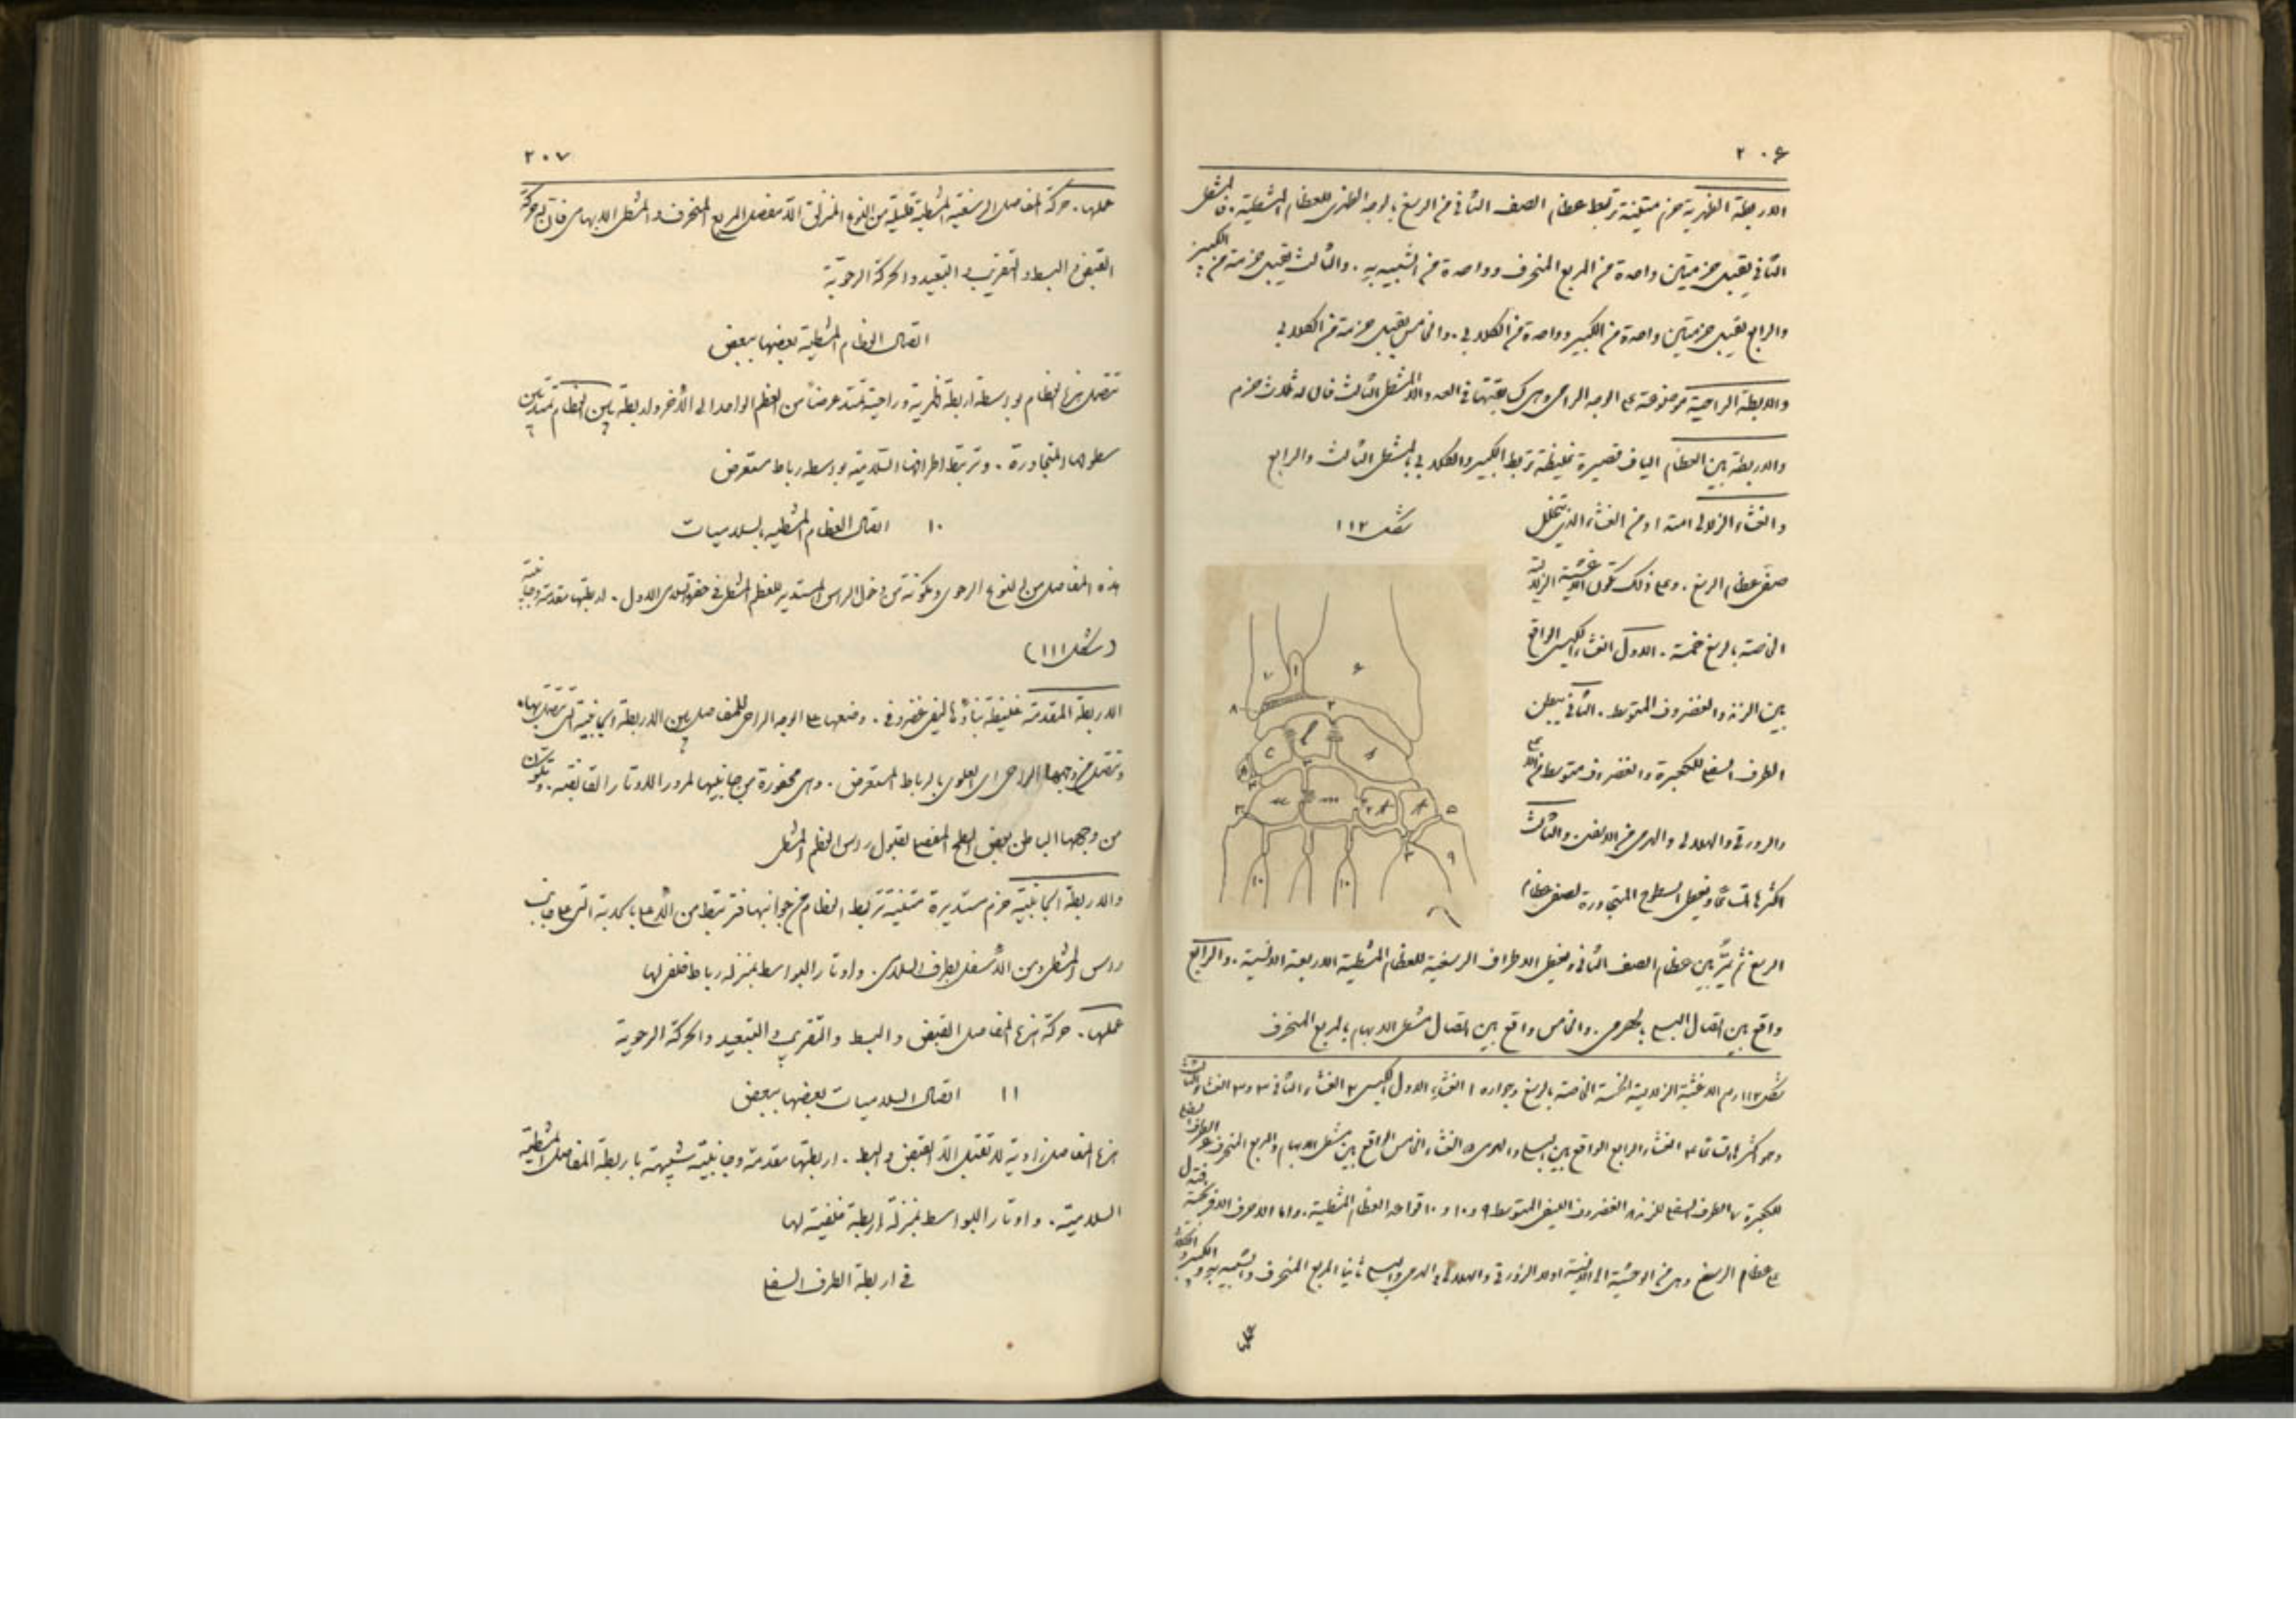 ٢٠٦
الاربطة الظهرية حزم متينة تربط عظام الصف الثاني من الرسغ بالوجه الظهري للعظام المشطية. فالمشطي
الثاني يقبل حزمتين واحدة من المربع المنحرف وواحدة من الشبيه به. والثالث يقبل حزمة من الكبير
والرابع يقبل حزمتين واحدة من الكبير وواحدة من الكلابي. والخامس يقبل حزمة من الكلابي
والاربطة الراحية موضوعة على الوجه الراحي وهي كسابقتها في العدد الا المشطي الثالث فان له ثلاث حزم
والاربطة بين العظام الياف قصيرة غليظة تربط الكبير والكلابي بالمشطي الثالث والرابع
والغشاء الزلالي امتداد من الغشاء الذي يتخلل
شكل ١١٢
صفي عظام الرسغ. وعلى ذلك تكون الاغشية الزلالية
الخاصة بالرسغ خمسة. الاول الغشاء الكيسي الواقع
بين الزند والغضروف المتوسط. الثاني يبطن
الطرف السفلي للكعبرة والغضروف متوسطا من الاعلى
والزورقي والهلالي والهرمي من الاسفل. والثالث
اكثرها اتساعا ويفصل السطوح المتجاورة لصفي عظام
١ ٢ ٣ ٣ ٣ ٤ ٥ ٦ ٧ ٨ ٩ ١٠ ١٠
الرسغ ثم يمر بين عظام الصف الثاني ويفصل الاطراف الرسغية للعظام المشطية الاربعة الانسية. والرابع
واقع بين اتصال البسلي بالهرمي. والخامس واقع بين اتصال مشطي الابهام بالمربع المنحرف
شكل ١١٢ رسم الاغشية الزلالية الخمسة الخاصة بالرسغ وجواره ١ الغشاء الاول الكيسي ٢ الغشاء الثاني ٣ و٣ الغشاء الثالث
وهو اكثرها اتساعا ٤ الغشاء الرابع الواقع بين البسلي والهرمي ٥ الغشاء الخامس الواقع بين مشطي الابهام والمربع المنحرف ٦ الطرف السفلي
للكعبرة ٧ الطرف السفلي للزند ٨ الغضروف الليفي المتوسط ٩ و١٠ و١٠ قواعد العظام المشطية. واما الاحرف الافرنجية فتدل
على عظام الرسغ وهي من الوحشية الى الانسية اولا الزورقي والهلالي والهرمي والبسلي ثانيا المربع المنحرف والشبيه به والكبير والكلابي
٢٠٧
عملها. حركة المفاصل الرسغية المشطية قليلة من النوع المنزلق الا مفصل المربع المنحرف والمشطي الابهامي فان له حركة
القبض والبسط والتقريب والتبعيد والحركة الرحوية
اتصال العظام المشطية بعضها ببعض
تتصل هذه العظام بواسطة اربطة ظهرية وراحية تمتد عرضا من العظم الواحد الى الآخر واربطة بين العظام تمتد بين
سطوحها المتجاورة. وترتبط اطرافها السلامية بواسطة رباط مستعرض
١٠ اتصال العظام المشطية بالسلاميات
هذه المفاصل من النوع الرحوي ومكونة من دخول الراس المستدير للعظم المشطي في حفرة السلامي الاول. اربطتها مقدمة وجانبية
(شكل ١١١)
الاربطة المقدمة غليظة بناؤها ليفي غضروفي. وضعها على الوجه الراحي للمفاصل بين الاربطة الجانبية التي تتصل بها.
وتتصل من وجهها الراحي اي العلوي بالرباط المستعرض. وهي محفورة من جانبيها لمرور الاوتار القابضة. وتكون
من وجهها الباطن بعض السطح المفصلي لقبول رؤس العظم المشطي
والاربطة الجانبية حزم مستديرة متينة تربط العظام من جوانبها فترتبط من الاعلى بالحدبة التي على جانب
رؤس المشطي ومن الاسفل بطرف السلامي. واوتار البواسط بمنزلة رباط خلفي لها
عملها. حركة هذه المفاصل القبض والبسط والتقريب والتبعيد والحركة الرحوية
١١ اتصال السلاميات بعضها ببعض
هذه المفاصل زاوية لا تقبل الا القبض والبسط. اربطتها مقدمة وجانبية شبيهة باربطة المفاصل المشطية
السلامية. واوتار البواسط بمنزلة اربطة خلفية لها
في اربطة الطرف السفلي